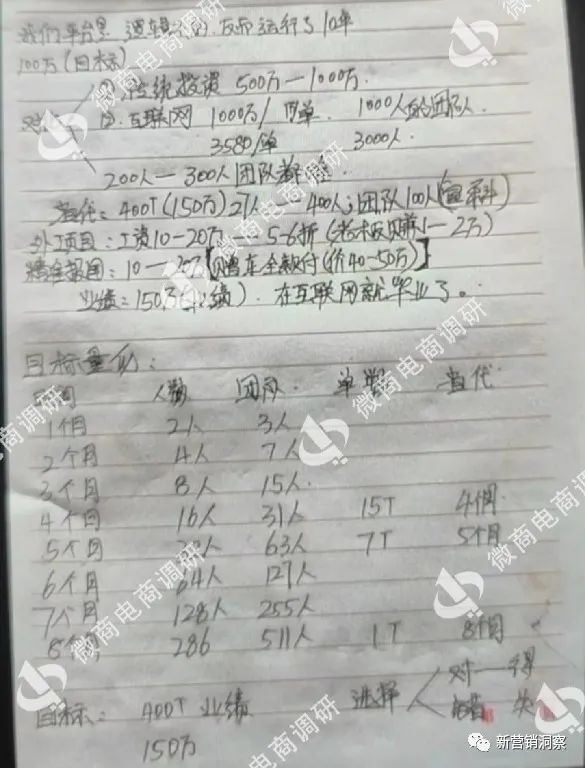 我们平台 运行了10年
100万(目标)
① 传统投资 500万一1000万.
② 互联网 1000万/ 单. 1000人的团队.
3580/单 3000人.
200人一300人团队
当代: 400T(150万)27人 一 400人; 团队100人
外工项目: 工资10-20万一5-6折 1-2万)
精准 : 10一20万【赠车全款付(价40-50万)】
业绩=150万( 绩). 在互联网就毕业了。
目标量化:
时间 人数 团队 单数 当代
1个月 2人 3人
2个月 4人 7人
3个月 8人 15人.
4个月 16人 31人 15T 4个月
5个月 63人 7T 5个月
6个月 64人 127人
7个月 128人 255人
8个月 286 511人 1T 8个月
对一得
目标: 400T 业绩 选择
失
150万
微商电商调研
新营销洞察